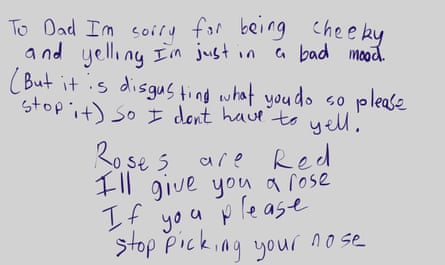 To Dad Im sorry for being cheeky
and yelling I'm just in a bad mood.
(But it is disgusting what you do so please
stop it) So I dont have to yell.
Roses are Red
I'll give you a rose
If you please
stop picking your nose